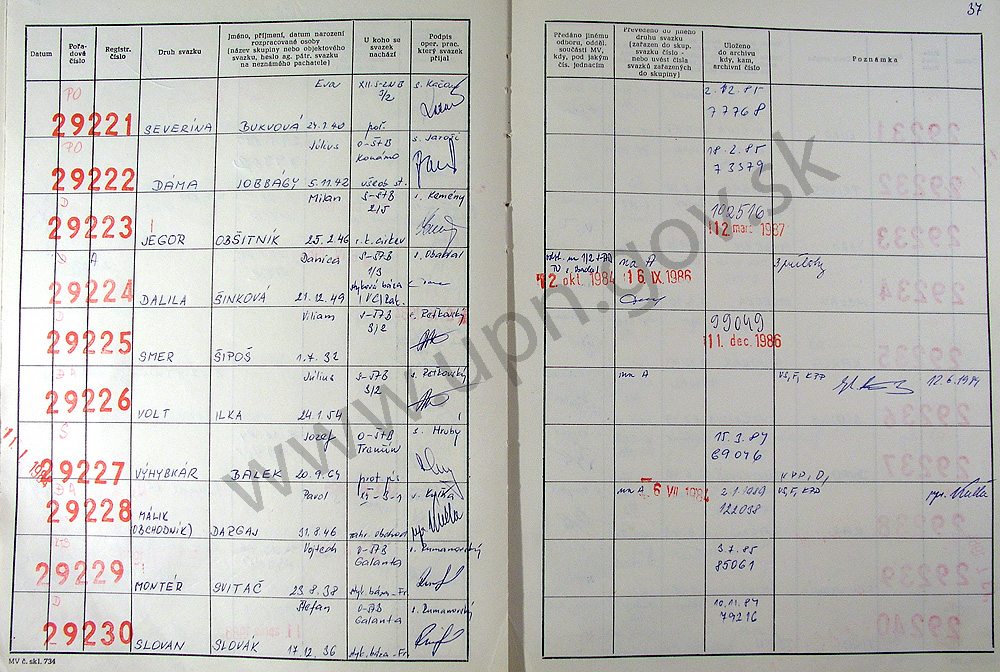 37
Datum
Pořadové číslo
Registr. číslo
Druh svazku
Jméno, příjmení, datum narození rozpracované osoby (název skupiny nebo objektového svazku, heslo ag. pátr. svazku na neznámého pachatele)
U koho se svazek nachází
Podpis oper. prac. který svazek přijal
Předáno jinému odboru, odděl. součásti MV, kdy, pod jakým čís. jednacím
Převedeno do jiného druhu svazku (zařazen do skup. svazku číslo - nebo uvést čísla svazků zařazených do skupiny)
Uloženo do archivu kdy, kam, archivní číslo
Poznámka
PO
Eva
3/2
2.12.85
29221
SEVERÍNA
BUKVOVÁ 24.7.40
77768
PO
Július
O-ŠTB
Komárno
s. Jaroši
18.2.85
29222
DÁMA
JOBBÁGY 5.11.42
všeob. st.
73579
D
Milan
S-ŠTB
2/5
s. Kemény
102516
29223
JEGOR
OBŠITNÍK 25.2.46
r.k. cirkev
12 mar. 1987
A
Danica
S-ŠTB
1/3
na A
3 prílohy
29224
DALILA
ŠINKOVÁ 21.12.49
12 okt. 1984
16 IX. 1986
D
Viliam
S-ŠTB
3/2
s. Peťkovský
99049
29225
SMER
ŠIPOŠ 1.7.32
11 dec. 1986
Július
S-ŠTB
3/2
s. Peťkovský
na A
VS, F, KTP
12.6.1984
29226
VOLT
ILKA 24.1.54
Š
Jozef
O-ŠTB
Trenčín
s. Hruby
15.3.84
11. I. 1984
29227
VÝHYBKÁR
BALEK 20.9.64
69046
Pavol
na A
6 VII. 1984
2.1.1989
VS, F, KTP
29228
MÁLIK
(OBCHODNÍK)
DARGAJ 31.8.46
zahr. obchod
122038
Vojtech
O-ŠTB
Galanta
s. Rumanovský
3.7.85
29229
MONTÉR
SVITAČ 23.8.38
85061
D
Štefan
O-ŠTB
Galanta
s. Rumanovský
10.11.84
29230
SLOVAN
SLOVÁK 17.12.36
79216
MV č. skl. 734
www.upn.gov.sk